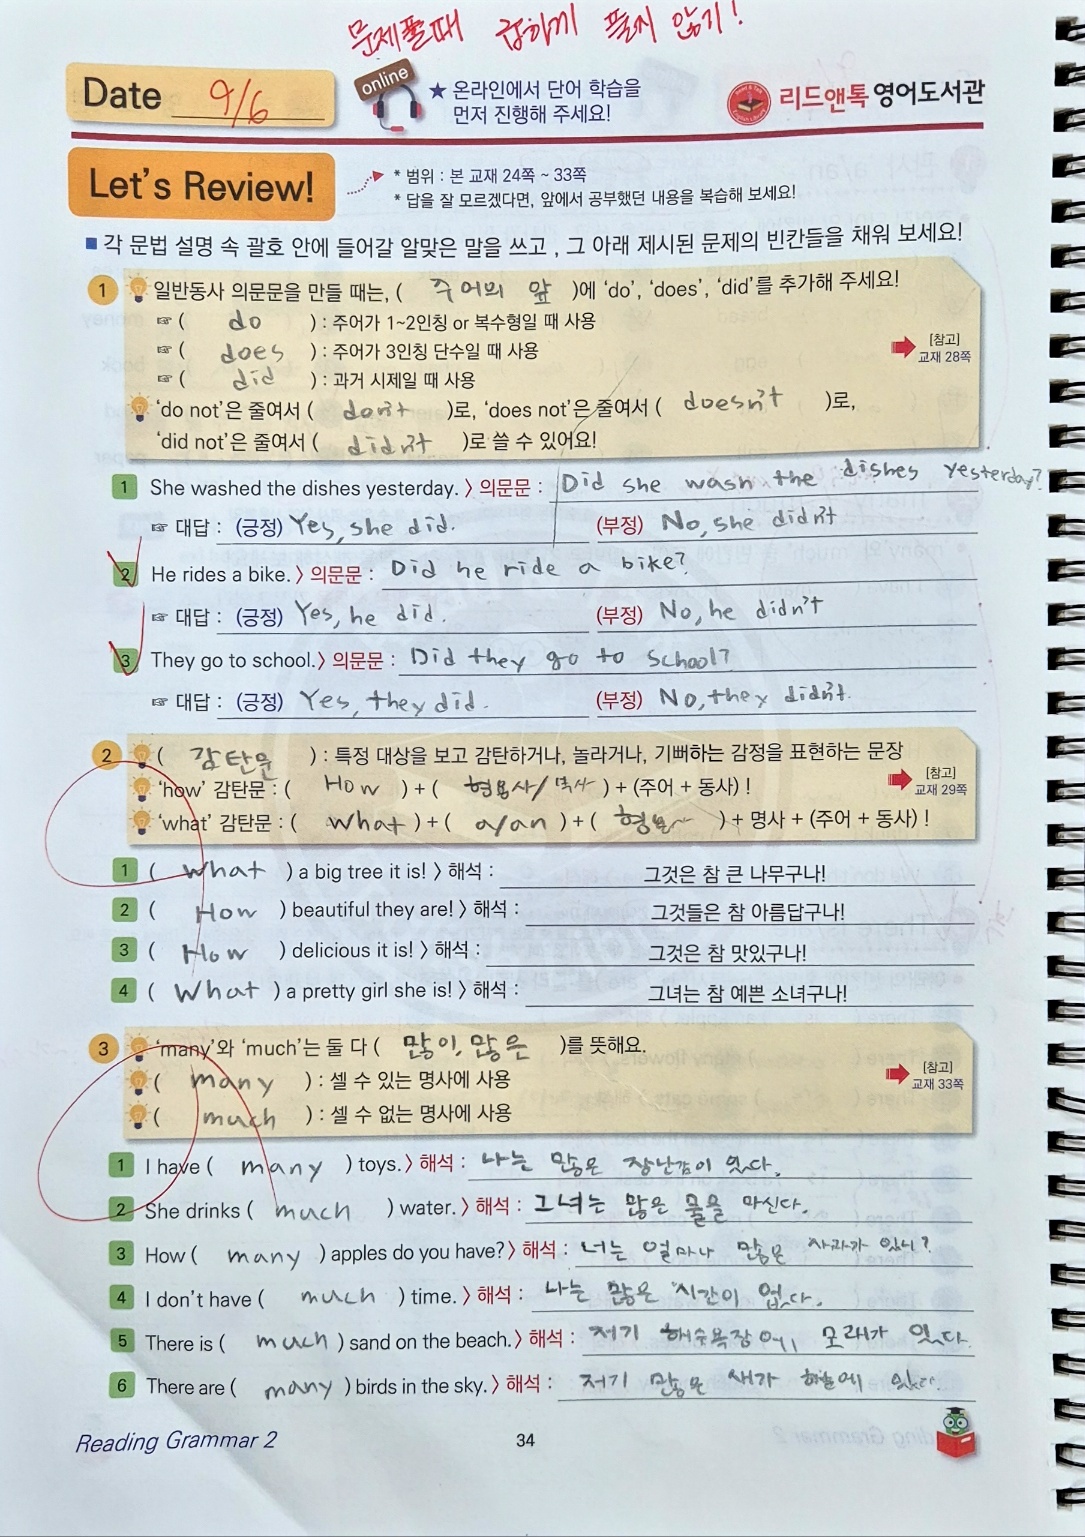 문제풀때 급하게 풀지 않기!
Date 9/6
online
★ 온라인에서 단어 학습을
먼저 진행해 주세요!
리드앤톡 영어도서관
Let's Review!
* 범위 : 본 교재 24쪽 ~ 33쪽
* 답을 잘 모르겠다면, 앞에서 공부했던 내용을 복습해 보세요!
■ 각 문법 설명 속 괄호 안에 들어갈 알맞은 말을 쓰고 , 그 아래 제시된 문제의 빈칸들을 채워 보세요!
1 일반동사 의문문을 만들 때는, ( 주어의 앞 )에 'do', 'does', 'did'를 추가해 주세요!
☞ ( do ) : 주어가 1~2인칭 or 복수형일 때 사용
☞ ( does ) : 주어가 3인칭 단수일 때 사용
☞ ( did ) : 과거 시제일 때 사용
[참고]
교재 28쪽
'do not'은 줄여서 ( don't )로, 'does not'은 줄여서 ( doesn't )로,
'did not'은 줄여서 ( didn't )로 쓸 수 있어요!
1 She washed the dishes yesterday. > 의문문 : Did she wash the dishes yesterday?
☞ 대답 : (긍정) Yes, she did. (부정) No, she didn't
2 He rides a bike. > 의문문 : Did he ride a bike?
☞ 대답 : (긍정) Yes, he did. (부정) No, he didn't
3 They go to school. > 의문문 : Did they go to school?
☞ 대답 : (긍정) Yes, they did. (부정) No, they didn't.
2 ( 감탄문 ) : 특정 대상을 보고 감탄하거나, 놀라거나, 기뻐하는 감정을 표현하는 문장
'how' 감탄문 : ( How ) + ( 형용사/ 부사 ) + (주어 + 동사) !
[참고]
교재 29쪽
'what' 감탄문 : ( what ) + ( a/an ) + ( 형용사 ) + 명사 + (주어 + 동사) !
1 ( what ) a big tree it is! > 해석 : 그것은 참 큰 나무구나!
2 ( How ) beautiful they are! > 해석 : 그것들은 참 아름답구나!
3 ( How ) delicious it is! > 해석 : 그것은 참 맛있구나!
4 ( What ) a pretty girl she is! > 해석 : 그녀는 참 예쁜 소녀구나!
3 'many'와 'much'는 둘 다 ( 많이, 많은 )를 뜻해요.
( many ) : 셀 수 있는 명사에 사용
( much ) : 셀 수 없는 명사에 사용
[참고]
교재 33쪽
1 I have ( many ) toys. > 해석 : 나는 많은 장난감이 있다.
2 She drinks ( much ) water. > 해석 : 그녀는 많은 물을 마신다.
3 How ( many ) apples do you have? > 해석 : 너는 얼마나 많은 사과가 있니?
4 I don't have ( much ) time. > 해석 : 나는 많은 시간이 없다.
5 There is ( much ) sand on the beach. > 해석 : 저기 해수욕장에 모래가 있다.
6 There are ( many ) birds in the sky. > 해석 : 저기 많은 새가 하늘에 있다.
Reading Grammar 2
34